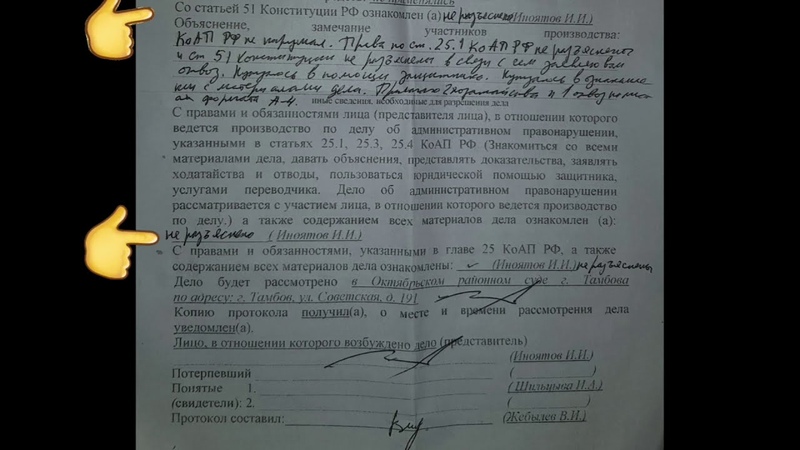 Со статьей 51 Конституции РФ ознакомлен (а) не разъяснено (Иноятов И.И.)
Объяснение, замечание участников производства:
КоАП РФ не нарушал. Права по ст. 25.1 КоАП РФ не разъяснены
и ст 51 Конституции не разъяснены в связи с чем заявляю вам
отвод. Нуждаюсь в помощи защитника. Нуждаюсь в ознакомле-
нии с материалами дела. 2 ходатайства и 1 отвод
формата А-4. иные сведения, необходимые для разрешения дела
С правами и обязанностями лица (представителя лица), в отношении которого
ведется производство по делу об административном правонарушении,
указанными в статьях 25.1, 25.3, 25.4 КоАП РФ (Знакомиться со всеми
материалами дела, давать объяснения, представлять доказательства, заявлять
ходатайства и отводы, пользоваться юридической помощью защитника,
услугами переводчика. Дело об административном правонарушении
рассматривается с участием лица, в отношении которого ведется производство
по делу.) а также содержанием всех материалов дела ознакомлен (а):
не разъяснено (Иноятов И.И.)
С правами и обязанностями, указанными в главе 25 КоАП РФ, а также
содержанием всех материалов дела ознакомлены: (Иноятов И.И.) не разъяснены
Дело будет рассмотрено в Октябрьском районном суде г. Тамбова
по адресу: г. Тамбов, ул. Советская, д. 191
Копию протокола получил(а), о месте и времени рассмотрения дела
уведомлен(а).
Лицо, в отношении которого возбуждено дело (представитель)
(Иноятов И.И.)
Потерпевший ( )
Понятые 1. ( Шильцова И.А.)
(свидетели): 2. ( )
Протокол составил: (Жебылев В.И.)